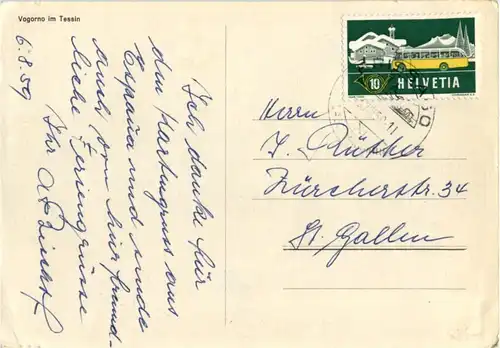 Vogorno im Tessin
6.8.59
Ich danke für
den Kartengruss aus
España und sende
auch von hier freund-
liche Feriengrüsse
Ihr
10 HELVETIA
Herrn
J. Rütther
Zürcherstr. 34
St. Gallen